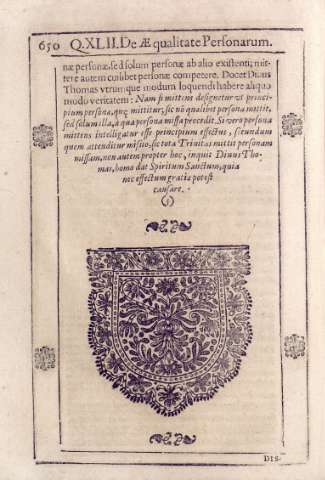 650 Q.XLII. De Æqualitate Personarum.
næ personæ, sed solum personæ ab alio existenti; mit-
tere autem cuilibet personæ competere. Docet Diuus
Thomas vtrumque modum loquendi habere aliquo
modo veritatem: Nam si mittens designetur vt princi-
pium personæ, quę mittitur, sic nõ quælibet persona mittit,
sed solum illa, a qua persona missa procedit. Si vero persona
mittens intelligatur esse principium effectus, secundum
quem attenditur missio, sic tota Trinitas mittit personam
missam, non autem propter hoc, inquit Diuus Tho-
mas, homo dat Spiritum Sanctum, quia
nec effectum gratiæ potest
causare.
DIS-